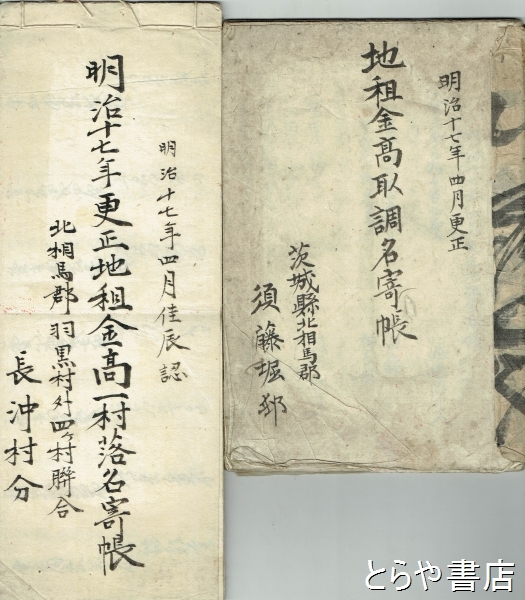 明治十七年四月更正
地租金高取調名寄帳
茨城縣北相馬郡
須藤堀邨
明治十七年四月佳辰認
明治十七年更正地租金高一村落名寄帳
北相馬郡羽黒村外四ヶ村聯合
長沖村分
とらや書店